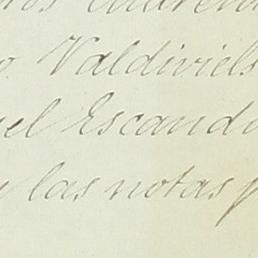 o. Valdiviels
uel Escando
y las notas p